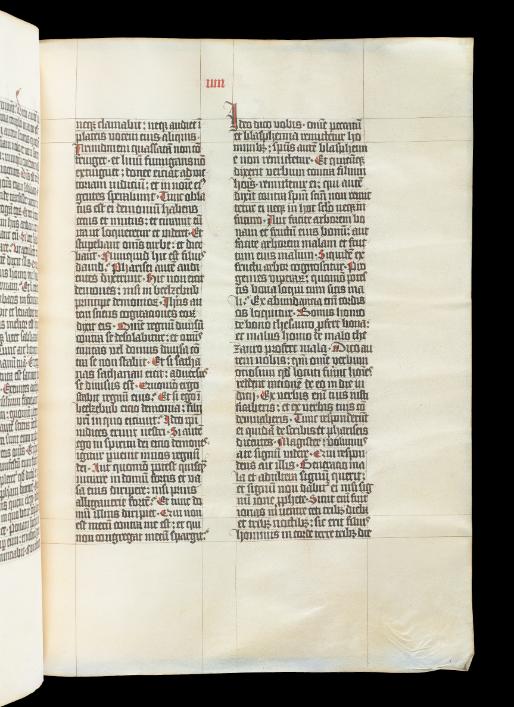 IIII
neq; clamabit: neq; audiet ĩ
plateis vocem eius aliquis.
Arundinem quassatã non cõ
fringet: et linũ fumigans nõ
extinguet: donec eiciat ad vic
toriam iudiciũ: et in noĩe eiꝰ
gentes sperabunt. Tunc obla
tus est ei demoniũ habens
cecus et mutus: et curauit eũ
ita ut loqueretur et videret. Et
stupebant om̃s turbe: et dice
bant. Nunquid hic est filius
dauid. Pharisei autẽ audi
entes dixerunt. Hic non eicit
demones: nisi in beelzebub
principe demonioꝝ. Ihũs au
tem sciens cogitaciones eoꝝ
dixit eis. Om̃e regnũ diuisũ
contra se desolabitur: et om̃is
ciuitas vel domus diuisa cõ
tra se non stabit. Et si satha
nas sathanan eicit: aduersꝰ
se diuisus est. Quomõ ergo
stabit regnũ eius? Et si ego ĩ
beelzebub eicio demonia: filij
vr̃i in quo eiciunt? Ideo ipi
iudices erunt vestri. Si autẽ
ego in spiritu dei eicio demones:
igitur peruenit in vos regnũ
dei. Aut quomõ potest quisq̃
intrare in domũ fortis et va
sa eius diripere: nisi prius
alligauerit fortẽ? Et tunc do
mũ illius diripiet. Qui non
est mecũ contra me est: et qui
non congregat mecũ spargit.
Ideo dico vobis. om̃e peccatũ
et blasphemia remittetur ho
minibꝫ: spũs autẽ blasphemi
e non remittetur. Et quicũq;
dixerit verbum contra filium
hoĩs. remittetur ei: qui autẽ
dixit contra spm̃ sctm̃ non remit
tetur ei neq; in hoc sclõ neq; in
futuro. Aut facite arborem bo
nam et fructũ eius bonũ: aut
facite arborem malam et fruc
tum eius malum. Siquidẽ ex
fructu arbor cognoscitur. Pro
genies viperaꝝ: quomõ potes
tis bona loqui cum sitis ma
li? Ex abundancia em̃ cordis
os loquitur. Bonus homo
de bono thesauro pfert bona:
et malus homo de malo the
zauro profert mala. Dico au
tem vobis: qm̃ om̃e verbum
ociosum qd̃ locuti fuint hoĩes
reddent racionẽ de eo in die iu
dicij. Ex verbis em̃ tuis iusti
ficaberis: et ex verbis tuis cõ
demnaberis. Tunc responderũt
ei quidã de scribis et phariseis
dicentes. Magister: volumus
a te signũ videre. Qui respon
dens ait illis. Generacio ma
la et adultera signũ querit:
et signũ non dabit̃ ei nisi sig
nũ ione pphete. Sicut em̃ fuit
ionas in ventre ceti tribꝫ diebꝫ
et tribꝫ noctibꝫ: sic erit filius
hominis in corde terre tribꝫ die